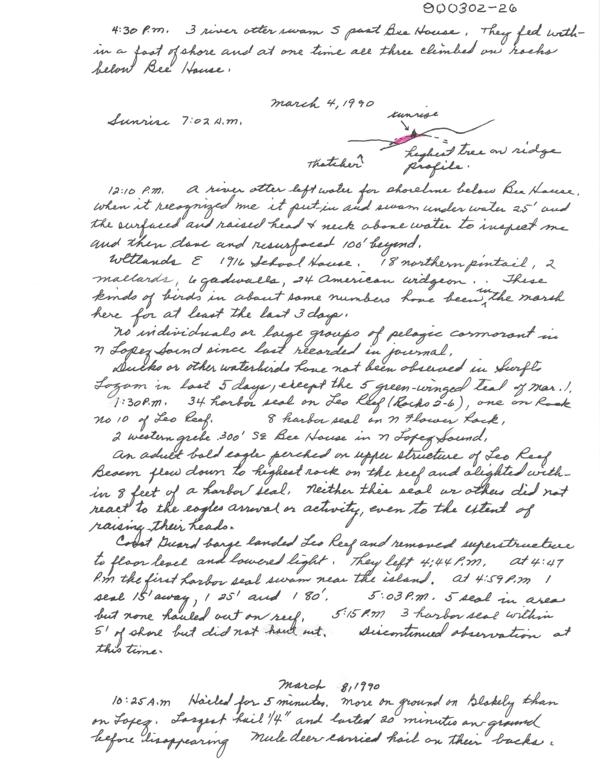 900302-26
4:30 P.M. 3 river otter swam S past Bee House. They fed with-
in a foot of shore and at one time all three climbed on rocks
below Bee House.
March 4, 1990
sunrise
Sunrise 7:02 A.M.
Thatcher highest tree on ridge
profile.
12:10 P.M. A river otter left water for shoreline below Bee House,
when it recognized me it put-in and swam under water 25' and
the surfaced and raised head & neck above water to inspect me
and then dove and resurfaced 100' beyond.
Wetlands E 1916 School House. 18 northern pintail, 2
mallards, 6 gadwalls, 24 American widgeon. These
kinds of birds in about same numbers have been in the marsh
here for at least the last 3 days.
No individuals or large groups of pelagic cormorant in
N Lopez Sound since last recorded in journal.
Ducks or other waterbirds have not been observed in Swifts
in last 5 days, except the 5 green-winged teal of Mar. 1.
1:30 P.M. 34 harbor seal on Leo Reef (Rocks 2-6), one on Rock
No 10 of Leo Reef. 8 harbor seal in N Flower Rock,
2 western grebe 300' SE Bee House in N Lopez Sound,
An adult bald eagle perched on upper structure of Leo Reef
Beacon flew down to highest rock on the reef and alighted with-
in 8 feet of a harbor seal. Neither this seal or others did not
react to the eagles arrival or activity, even to the extent of
raising their heads.
Coast Guard barge landed Leo Reef and removed superstructure
to floor level and lowered light. They left 4:44 P.M. At 4:47
P.M the first harbor seal swam near the island. At 4:59 P.M 1
seal 15' away, 1 25' and 1 80'. 5:03 P.M. 5 seal in area
but none hauled out on reef. 5:15 P.M 3 harbor seal within
5' of shore but did not haul out. Discontinued observation at
this time.
March 8, 1990
10:25 A.M Hailed for 5 minutes. More on ground on Blakely than
on Lopez. Largest hail 1/4" and lasted 20 minutes on ground
before disappearing Mule deer carried hail on their backs.